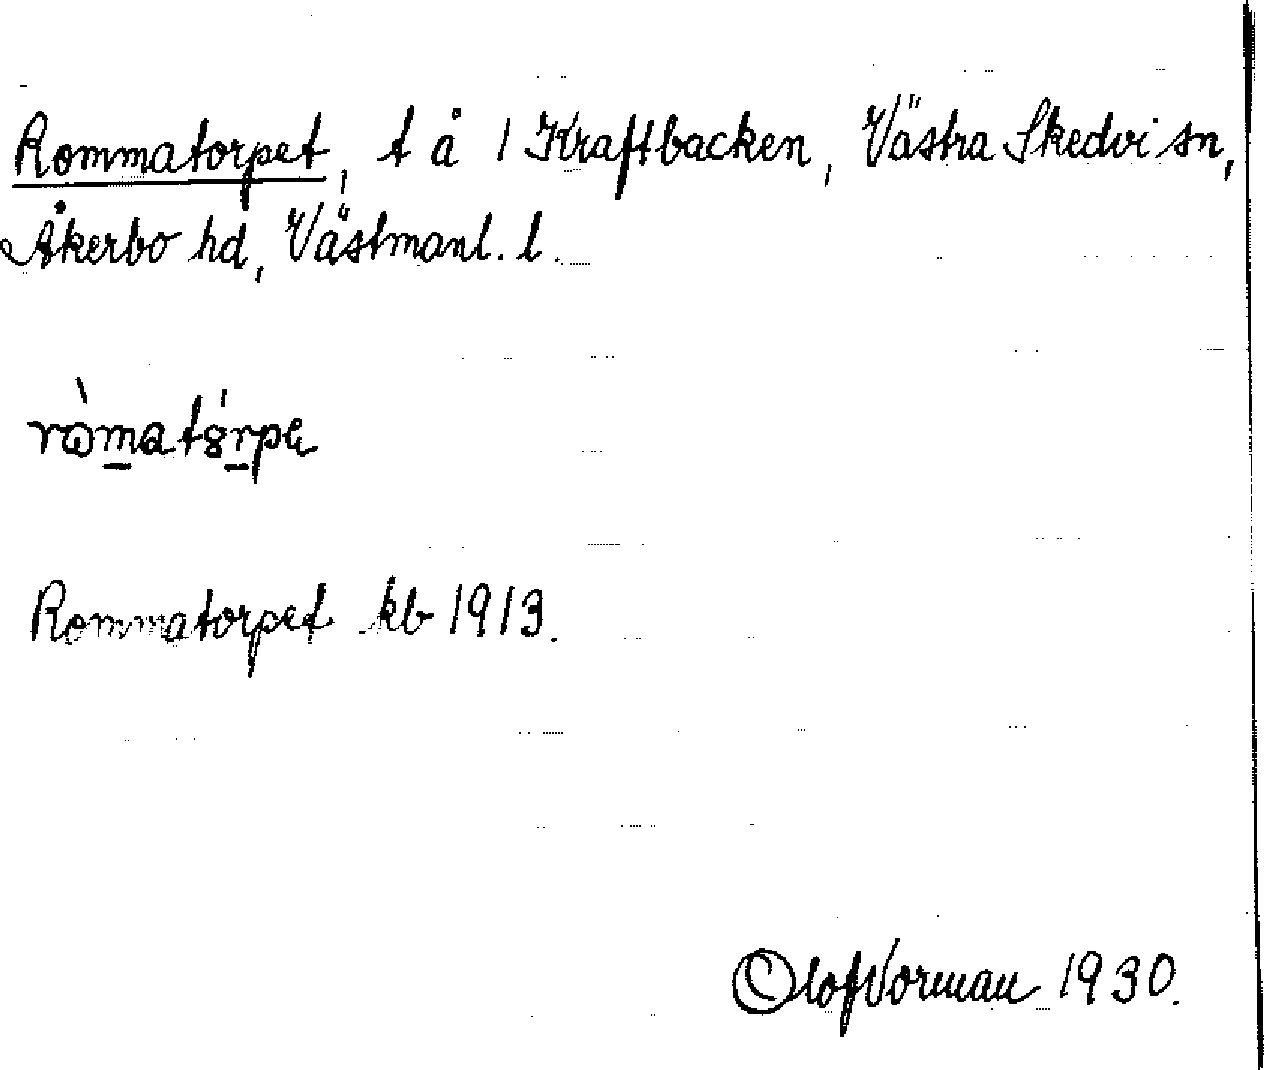 Rommatorpet, t å 1 Kraftbacken, Västra Skedvi sn,
Åkerbo hd, Västmanl. l.
Rommatorpet kb 1913.
Olof Vorman 1930.